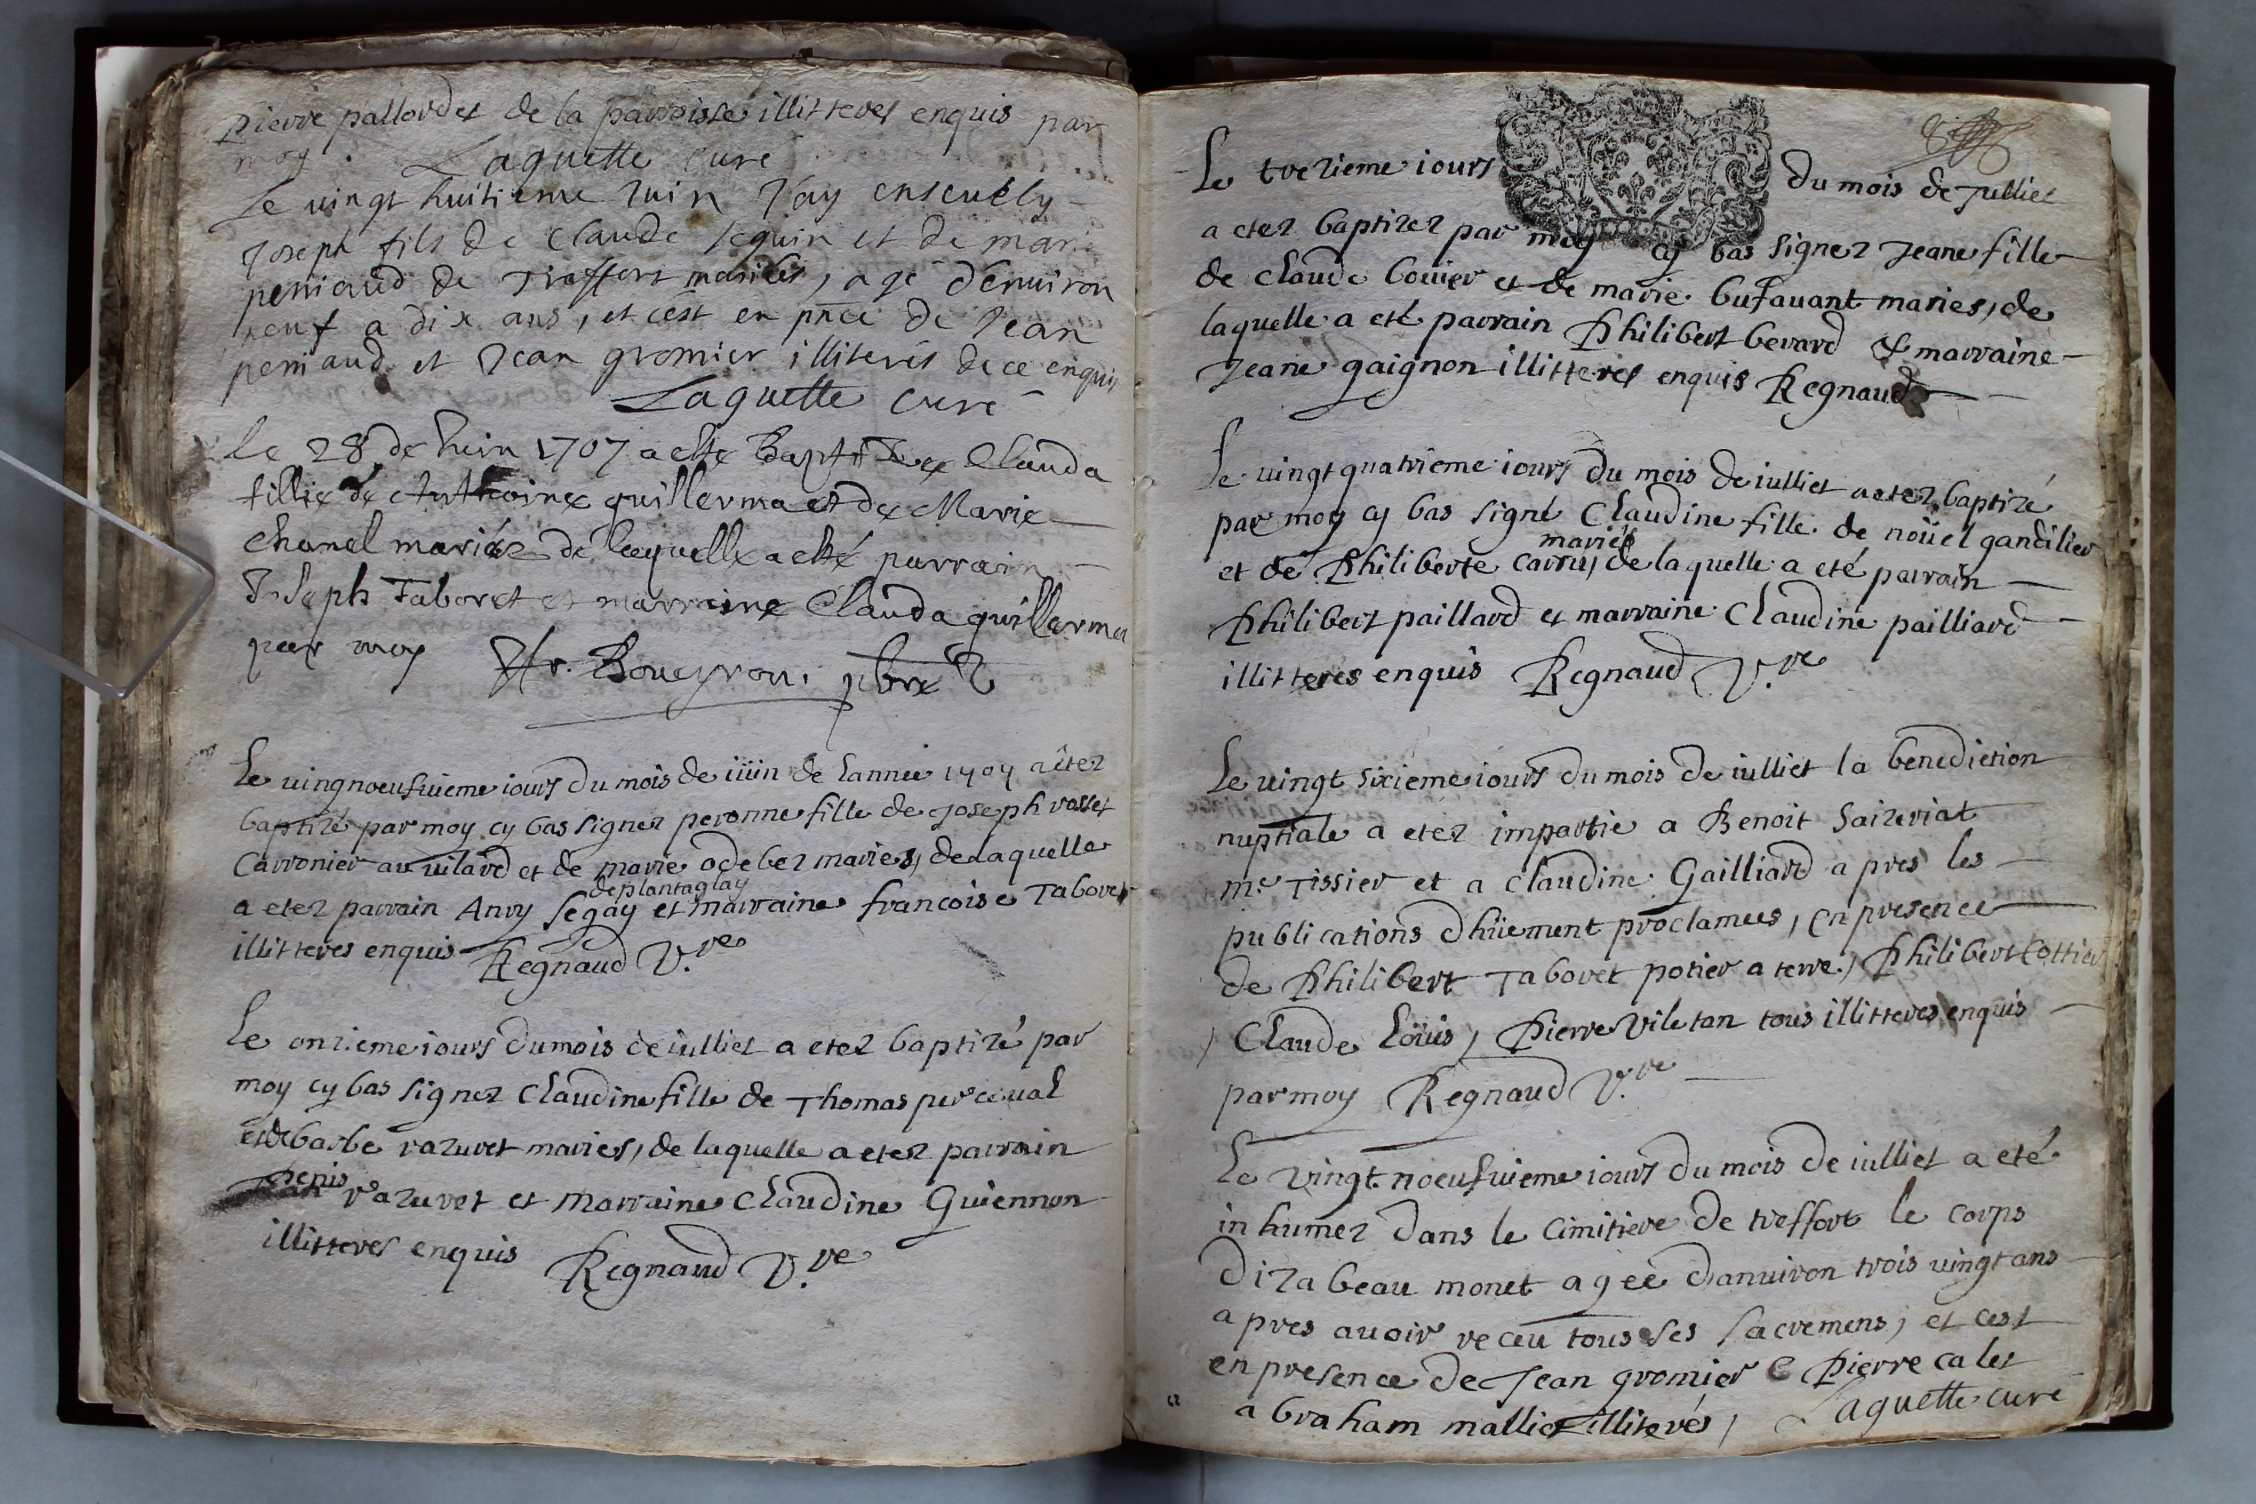 pierre pallordet de la parroisse illitteres enquis par
moy. Laguette curé
Le uingt huitieme Juin J'ay enseuely
Joseph fils de Claude seguin et de marie
peniaud de Treffort mariés, agé d'enuiron
neuf a dix ans, et c'est en pnce de Jean
peniaud et Jean gromier illiterés de ce enquis
Laguette curé
Le 28 de Iuin 1707 a esté Baptisée Clauda
fillie de Anthoine guillerma et de Marie
Chanel mariéz de laquelle a esté parrain
Joseph Taboret et marraine Clauda guillerma
par moy Boueyron, pbre
Le uingnoeufuieme iours du mois de iüin de lannée 1707 a êtez
baptizé par moy cy bas signez peronne fille de Joseph rosset
Carronier au uilard et de marie odebez maries, de laquelle
deplantaglay
a etez parrain Anry segay et marraine francoise Taboret
illitteres enquis Regnaud V.re
Le onzieme iours du mois de iulliet a etez baptizé par
moy cy bas signez Claudine fille de Thomas perceual
et de barbe razuret maries, de laquelle a etez parrain
Denis razuret et marraine Claudine Guiennon
illitteres enquis Regnaud V.re
Le trezieme iours du mois de Julliet
a etez baptizez par moy cy bas signez Jeane fille
de Claude bouier et de marie bufauant maries, de
laquelle a eté parrain Philibert berard & marraine
Jeane gaignon illitteres enquis Regnaud
Le uingt quatrieme iours du mois de iulliet a etez baptizé
par moy cy bas signé Claudine fille de noüel gandilier
mariés
et de Philiberte carru, de laquelle a eté parrain
Philibert paillard et marraine Claudine pailliard
illitteres enquis Regnaud V.re
Le uingt sixieme iours du mois de iulliet la benediction
nuptiale a etez impartie a Benoit saizeriat
m.e Tissier et a Claudine Gailliard a pres les
publications dhüement proclamees, en presence
de Philibert Taboret potier a terre, Philibert Cottier
, Claude Loüis, Pierre Viletan tous illitteres enquis
par moy Regnaud V.re
Le Vingt noeufuieme iours du mois de iulliet a eté
inhumez dans le cimitiere de treffort le corps
dizabeau monet agéé danuiron trois uingt ans
apres auoir receu tous ses sacremens, et cest
en presence de Jean gromier & Pierre calet
abraham malliet illiterés, Laguette curé